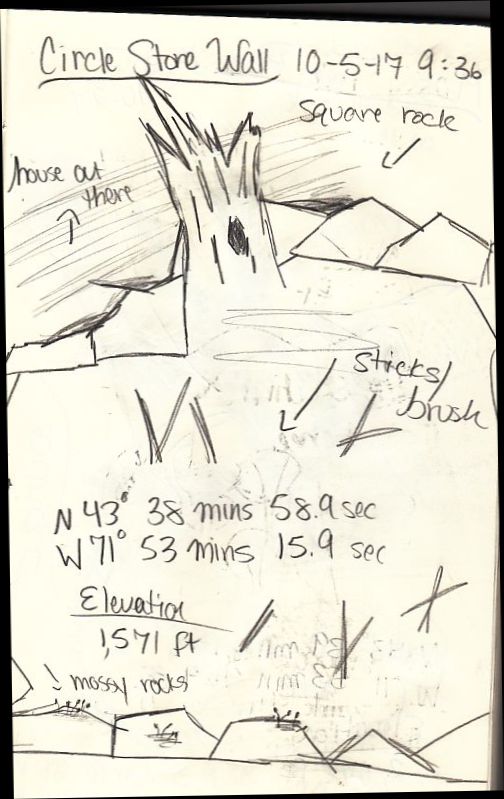 Circle Stone Wall 10-5-17 9:36
Square rock
house out
there
sticks/
brush
N 43° 38 mins 58.9 sec
W 71° 53 mins 15.9 sec
Elevation
1,571 ft
mossy rocks